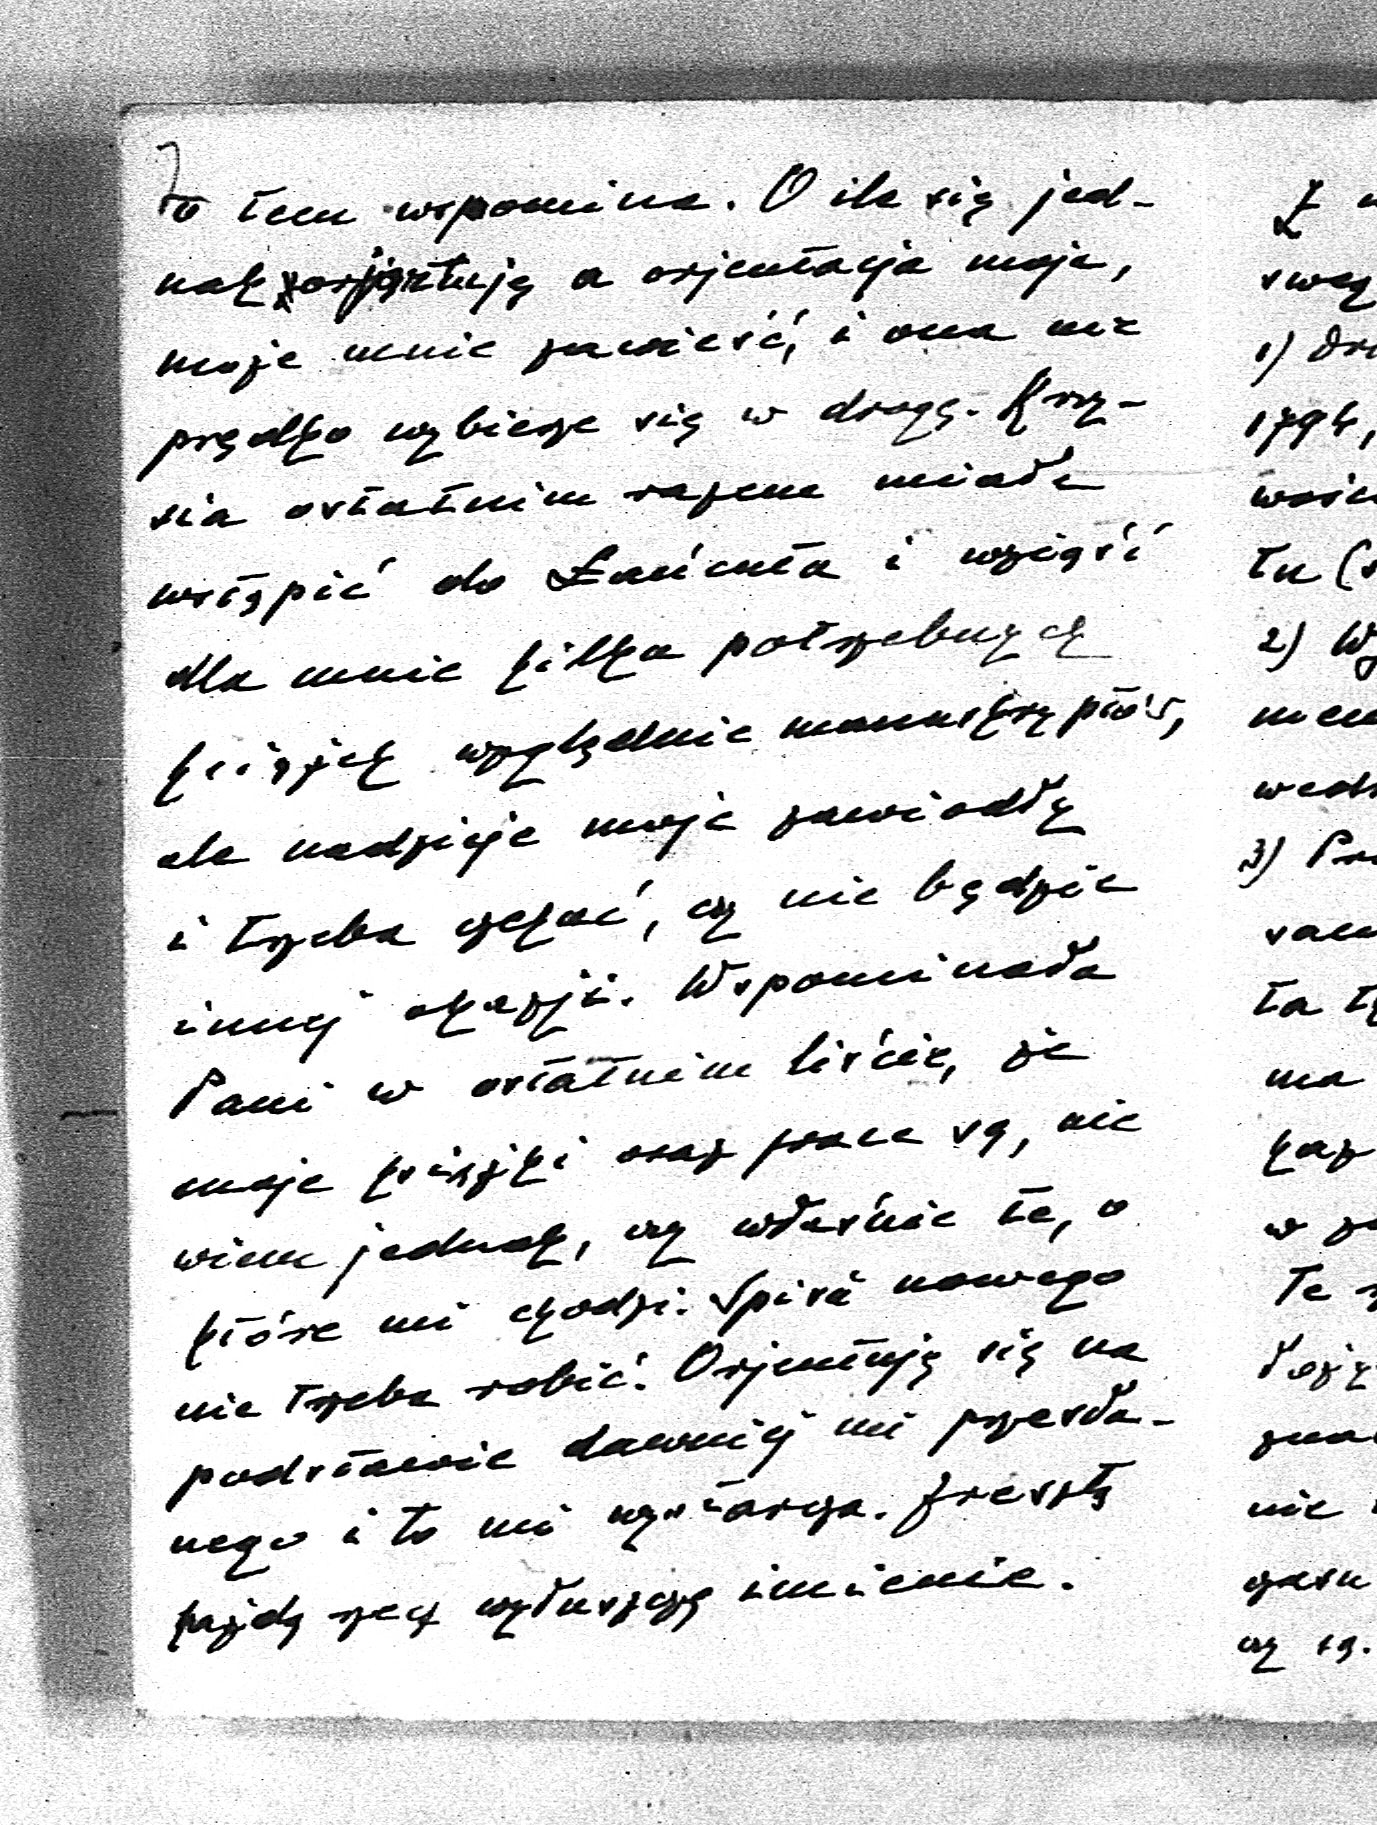 o tem wspomina. O ile się jed-
nak orjentuję a orjentacja moja,
może mnie zawieść, i ona nie
prędko wybierze się w drogę. Krzy-
sia ostatnim razem miała
wstąpić do Łańcuta i wziąść
dla mnie kilka potrzebnych
książek względnie manuskryptów,
ale nadzieje moje zawiodły
i trzeba czekać, czy nie będzie
innej okazji. Wspominała
Pani w ostatnim liście, że
moje książki oraz prace są, nie
wiem jednak, czy właśnie te, o
które mi chodzi. Spisu nowego
nie trzeba robić. Orjentuję się na
podstawie dawniej mi przesła-
nego i to mi wystarcza. Zresztą
każdą rzecz wyłuszczę imiennie.
1)
1794,
tu
2)
3)
ta
ma
kaz
w
Te
nie
czy są.